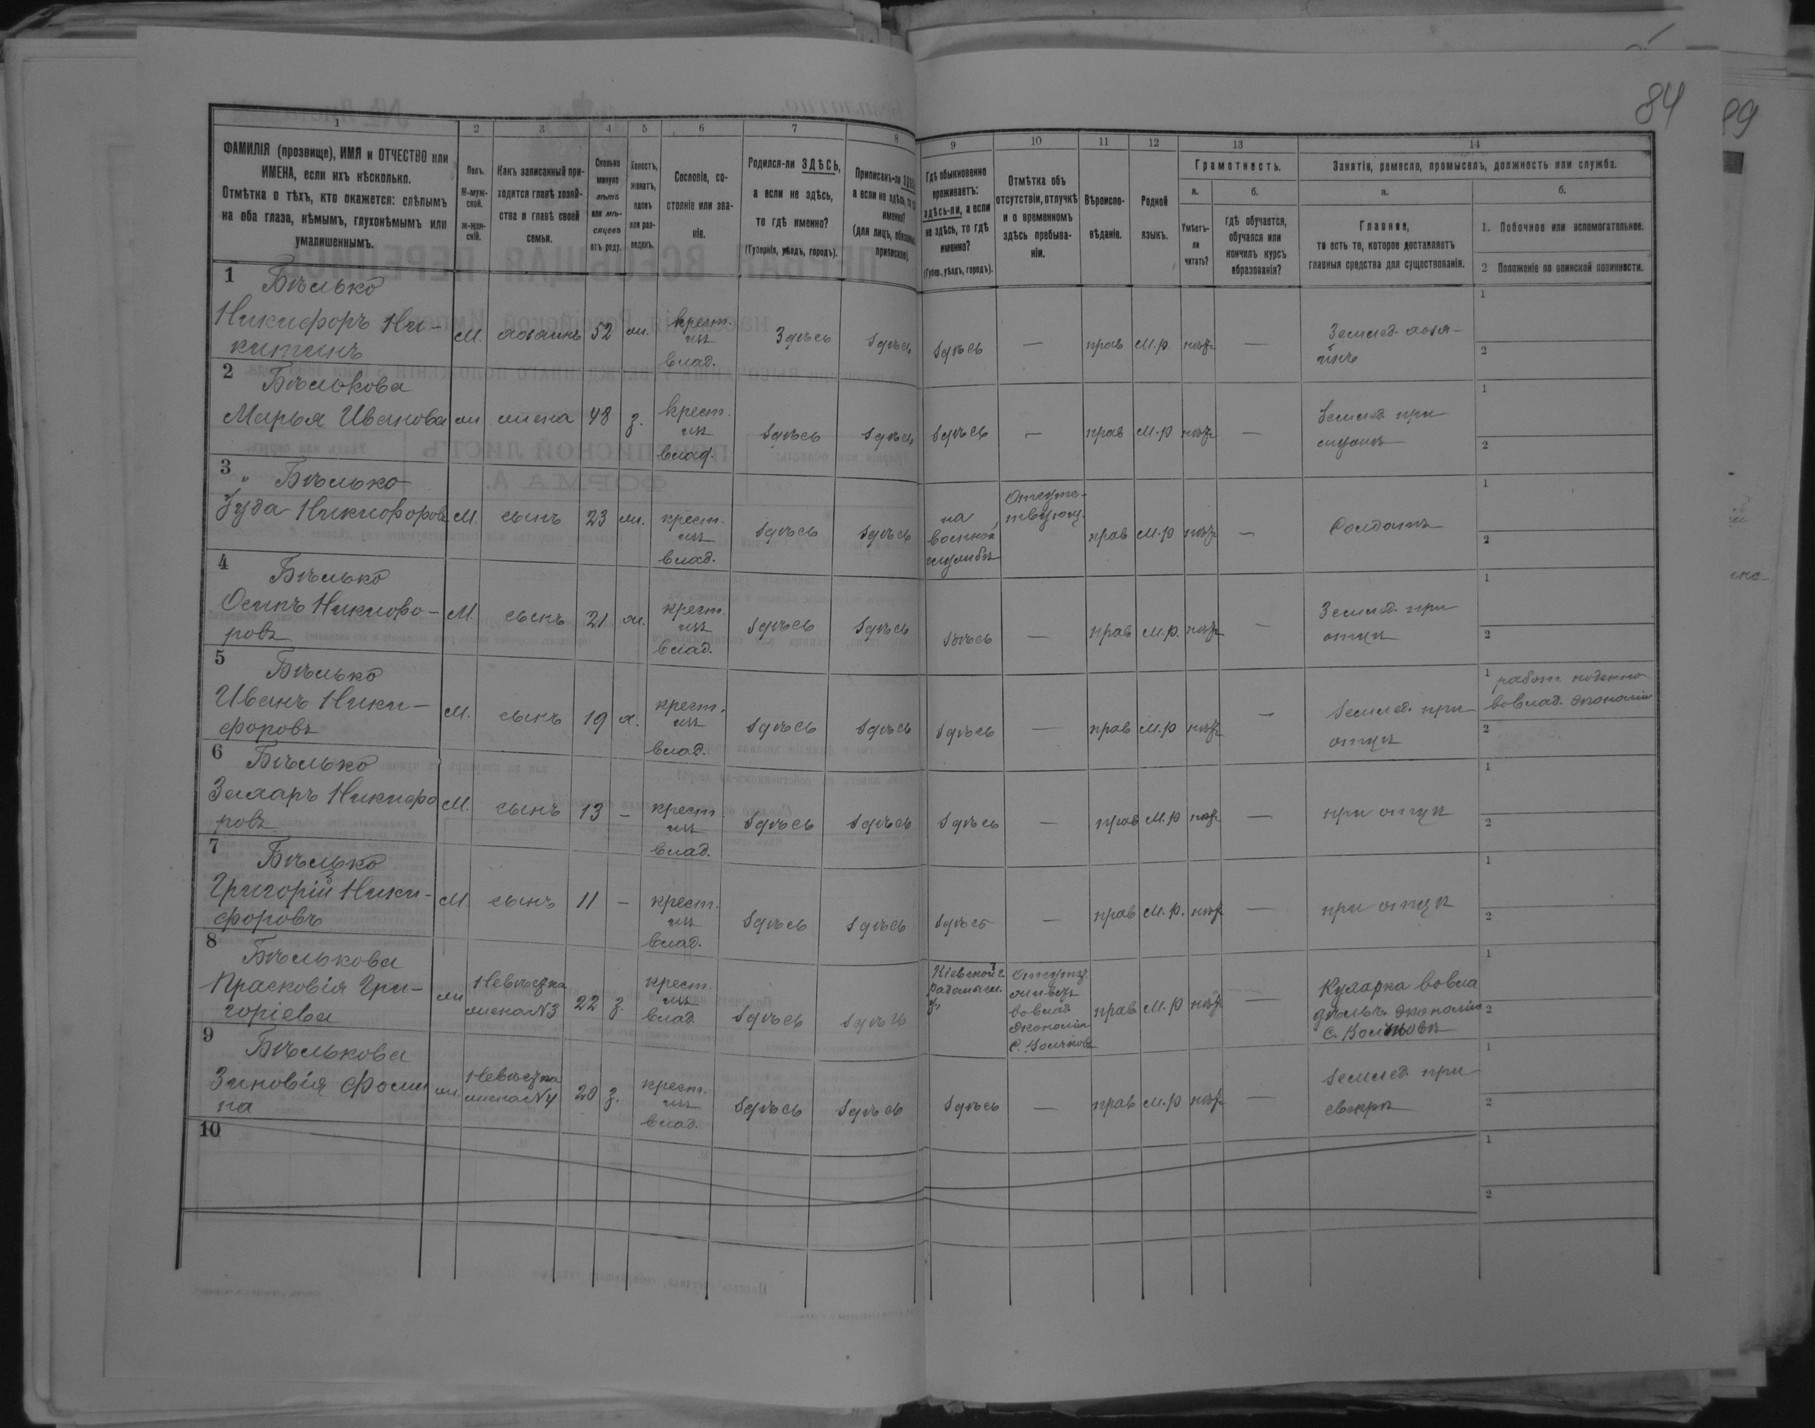 84
99
1
2
3
4
5
6
7
8
9
10
11
12
13
14
ФАМИЛІЯ (прозвище), ИМЯ и ОТЧЕСТВО или
ИМЕНА, если ихъ нѣсколько.
Отмѣтка о тѣхъ, кто окажется: слѣпымъ
на оба глаза, нѣмымъ, глухонѣмымъ или
умалишеннымъ.
Полъ.
М-муж-
ской.
Ж-жен-
скій.
Какъ записанный при-
ходится главѣ хозяй-
ства и главѣ своей
семьи.
Сколько
минуло
лѣтъ
или мѣ-
сяцевъ
отъ роду.
Холостъ,
женатъ,
вдовъ
или раз-
веденъ.
Сословіе, со-
стояніе или зва-
ніе.
Родился-ли ЗДѢСЬ,
а если не здѣсь,
то гдѣ именно?
(Губернія, уѣздъ, городъ).
Приписанъ-ли
а если не здѣсь, то
именно?
(для лицъ,
Гдѣ обыкновенно
проживаетъ:
здѣсь-ли, а если
не здѣсь, то гдѣ
именно?
(Губерн., уѣздъ, городъ).
Отмѣтка объ
отсутствіи, отлучкѣ
и о временномъ
здѣсь пребыва-
ніи.
Вѣроиспо-
вѣданіе.
Родной
языкъ.
Грамотность.
а.
Умѣетъ-
ли
читать?
б.
гдѣ обучается,
обучался или
кончилъ курсъ
образованія?
Занятіе, ремесло, промыселъ, должность или служба.
а.
Главное,
то есть то, которое доставляетъ
главныя средства для существованія.
б.
1. Побочное или вспомогательное.
2 Положеніе по воинской повинности.
1 Бѣлько
Никифоръ Ни-
китинъ
М. хозяинъ 52 ж. крест. изъ влад. Здѣсь здѣсь здѣсь — прав М.р. — Землед. хозя-
инъ
1
2
2 Бѣлькова
Марья Иванова ж жена 48 з. крест. изъ влад. здѣсь здѣсь здѣсь — прав М.р — Землед при
1
2
3 " Бѣлько
Іуда Никифоров М. сынъ 23 ж. крест. изъ влад. здѣсь здѣсь на военной службѣ Отсутс-
твующ. прав М.р — Солдатъ
1
2
4 Бѣлько
Осипъ Никифо-
ровъ
М. сынъ 21 ж. крест. изъ влад. здѣсь здѣсь здѣсь — прав М.р. — Землед при
отцѣ
1
2
5 Бѣлько
Иванъ Ники-
форовъ
М. сынъ 19 х. крест. изъ влад. здѣсь здѣсь здѣсь — прав М.р — Землед. при
отцѣ
1 работ поденно
во влад. экономіи
2
6 Бѣлько
Захаръ Никифо
ровъ
М. сынъ 13 — крест. изъ влад. здѣсь здѣсь здѣсь — прав М.р — при отцѣ
1
2
7 Бѣлько
Григорій Ники-
форовъ
М. сынъ 11 — крест. изъ влад. здѣсь здѣсь здѣсь — прав М.р. — при отцѣ
1
2
8 Бѣлькова
Прасковія Гри-
горіева
ж Невѣстка жена №3 22 з. крест. изъ влад. здѣсь здѣсь Кіевской г. Радомысл. у. во влад экономіи прав М.р — Кухарка во вла
дѣльч экономіи
1
2
9 Бѣлькова
Зиновія Фоми
на
ж. Невѣстка жена №4 20 з. крест. изъ влад. здѣсь здѣсь здѣсь — прав М.р — Землед при
свекрѣ
1
2
10
1
2